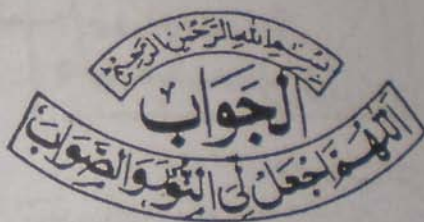 بِسْمِ اللهِ الرَّحْمٰنِ الرَّحِيْمِ
الْجَوَابُ
اَللّٰهُمَّ اجْعَلْ لِّىَ النُّوْرَ وَالصَّوَابَ